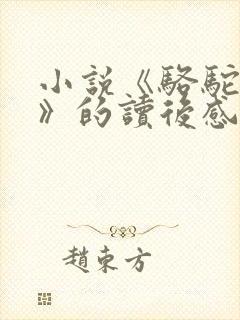 小說《駱駝
》的讀後感
趙東方